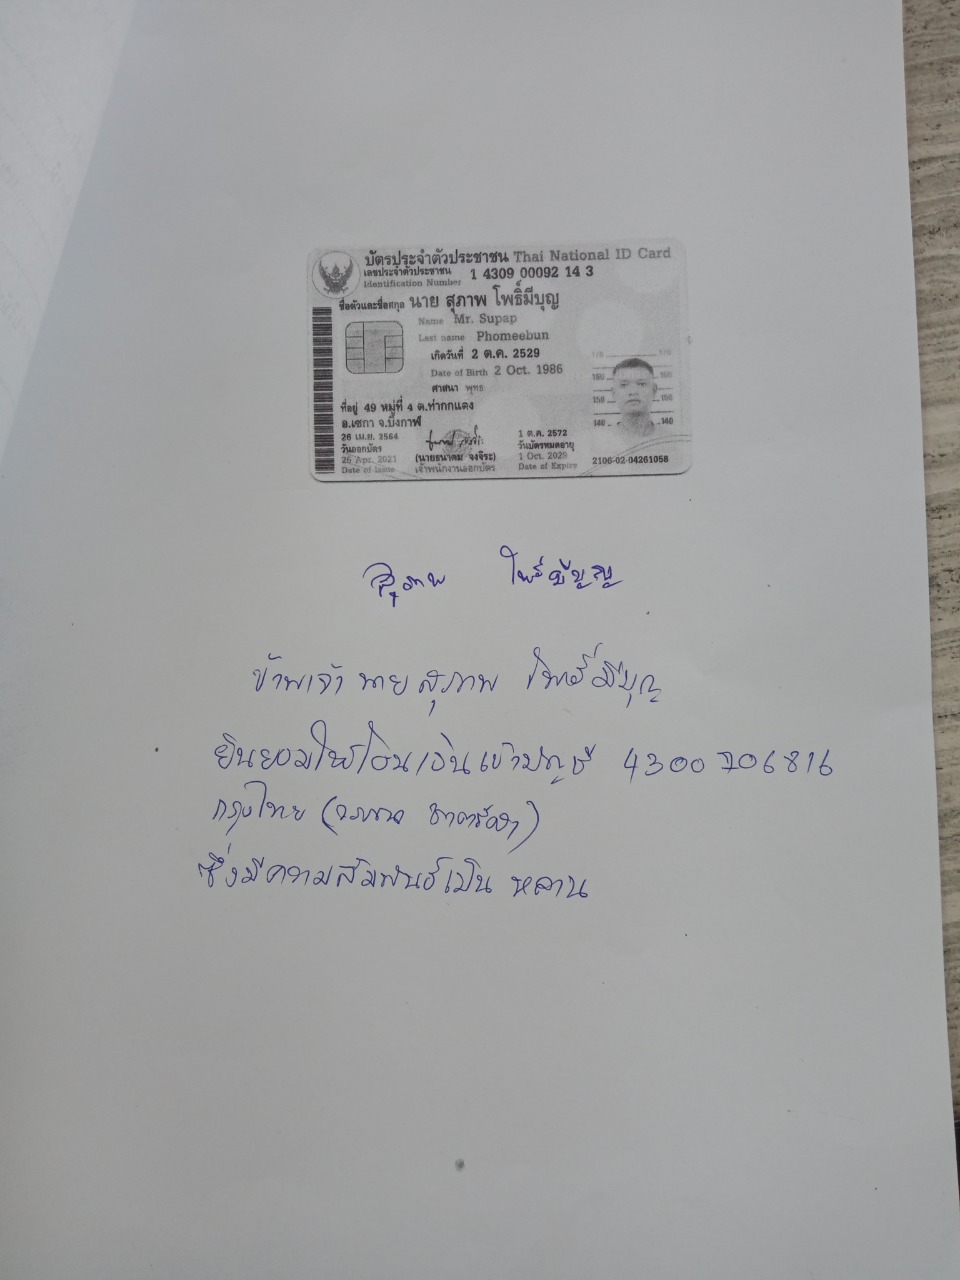 บัตรประจำตัวประชาชน Thai National ID Card
เลขประจำตัวประชาชน 1 4309 00092 14 3
Identification Number
ชื่อตัวและชื่อสกุล นาย สุภาพ โพธิ์มีบุญ
Name Mr. Supap
Last name Phomeebun
เกิดวันที่ 2 ต.ค. 2529
Date of Birth 2 Oct. 1986
ศาสนา พุทธ
ที่อยู่ 49 หมู่ที่ 4 ต.ท่ากกแดง
อ.เซกา จ.บึงกาฬ
26 เม.ย. 2564
วันออกบัตร
26 Apr. 2021
Date of Issue
(นายธนาคม จงจิระ)
เจ้าพนักงานออกบัตร
1 ต.ค. 2572
วันบัตรหมดอายุ
1 Oct. 2029
Date of Expiry
170 170
160 160
150 150
140 140
2106-02-04261058
สุภาพ โพธิ์มีบุญ
ข้าพเจ้า นาย สุภาพ โพธิ์มีบุญ
ยินยอมให้โอนเงินเข้าบัญชี 4300706816
กรุงไทย
ซึ่งมีความสัมพันธ์เป็น หลาน